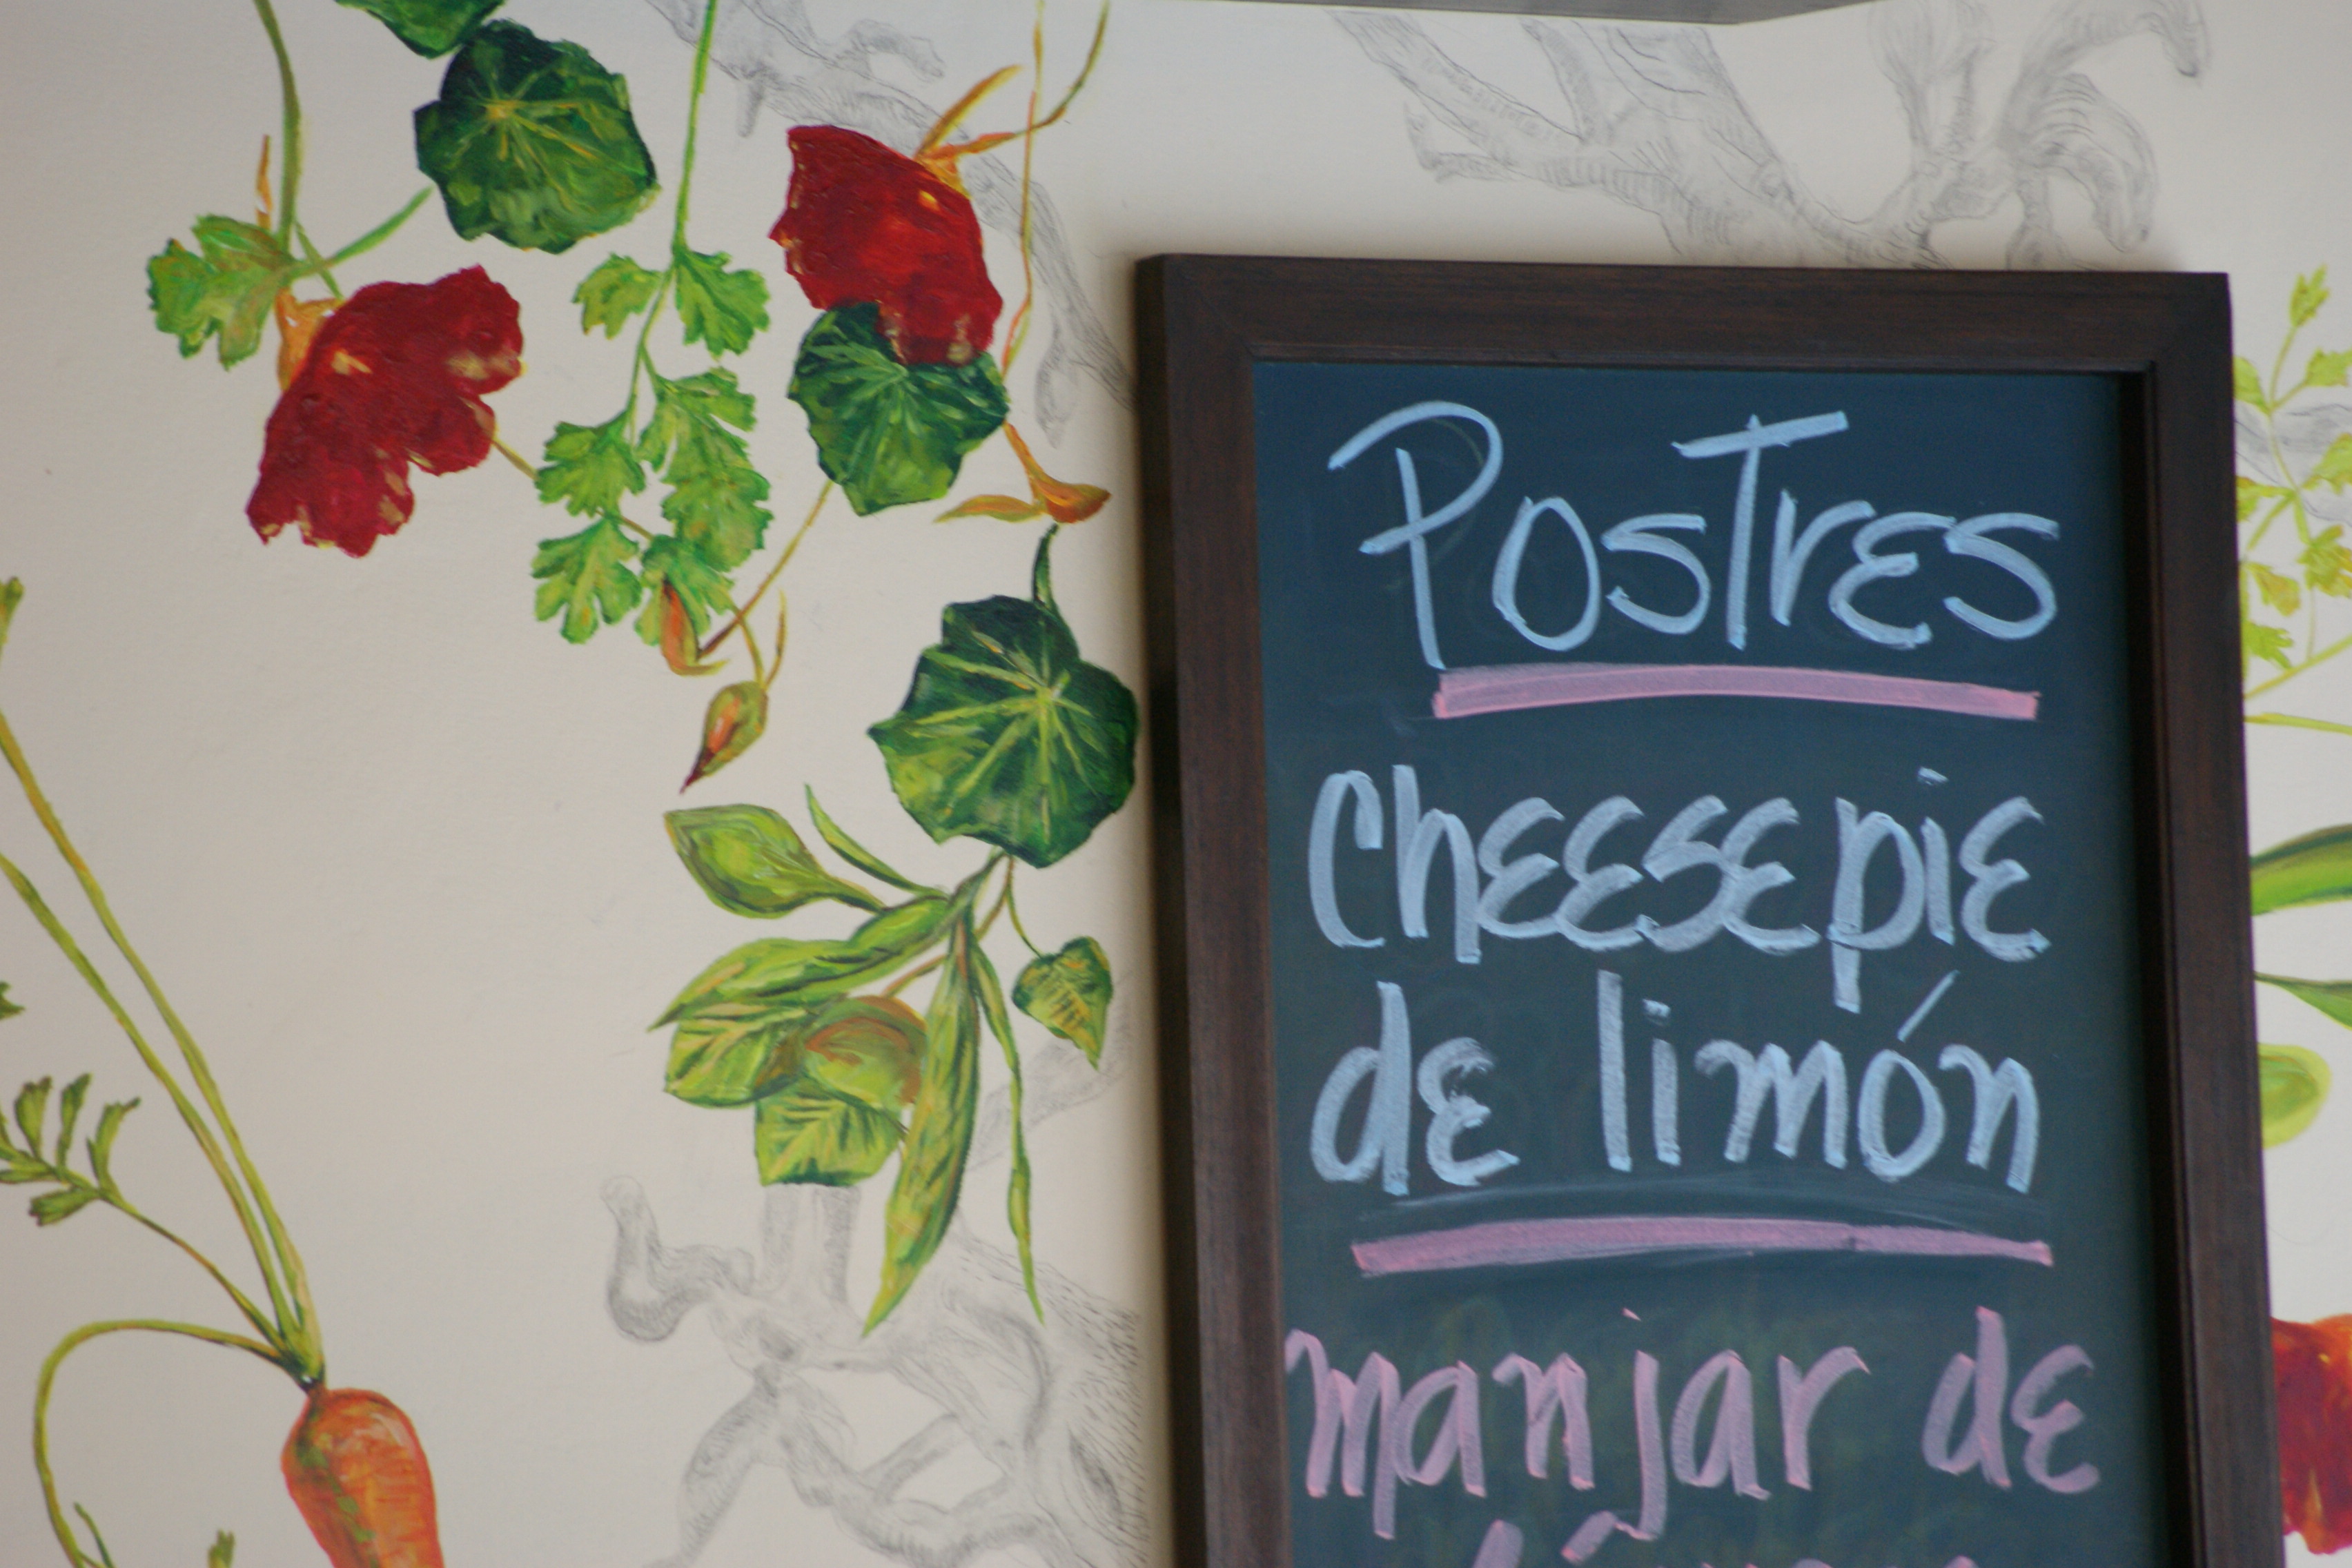 Postres
Cheesepie
de limón
manjar de